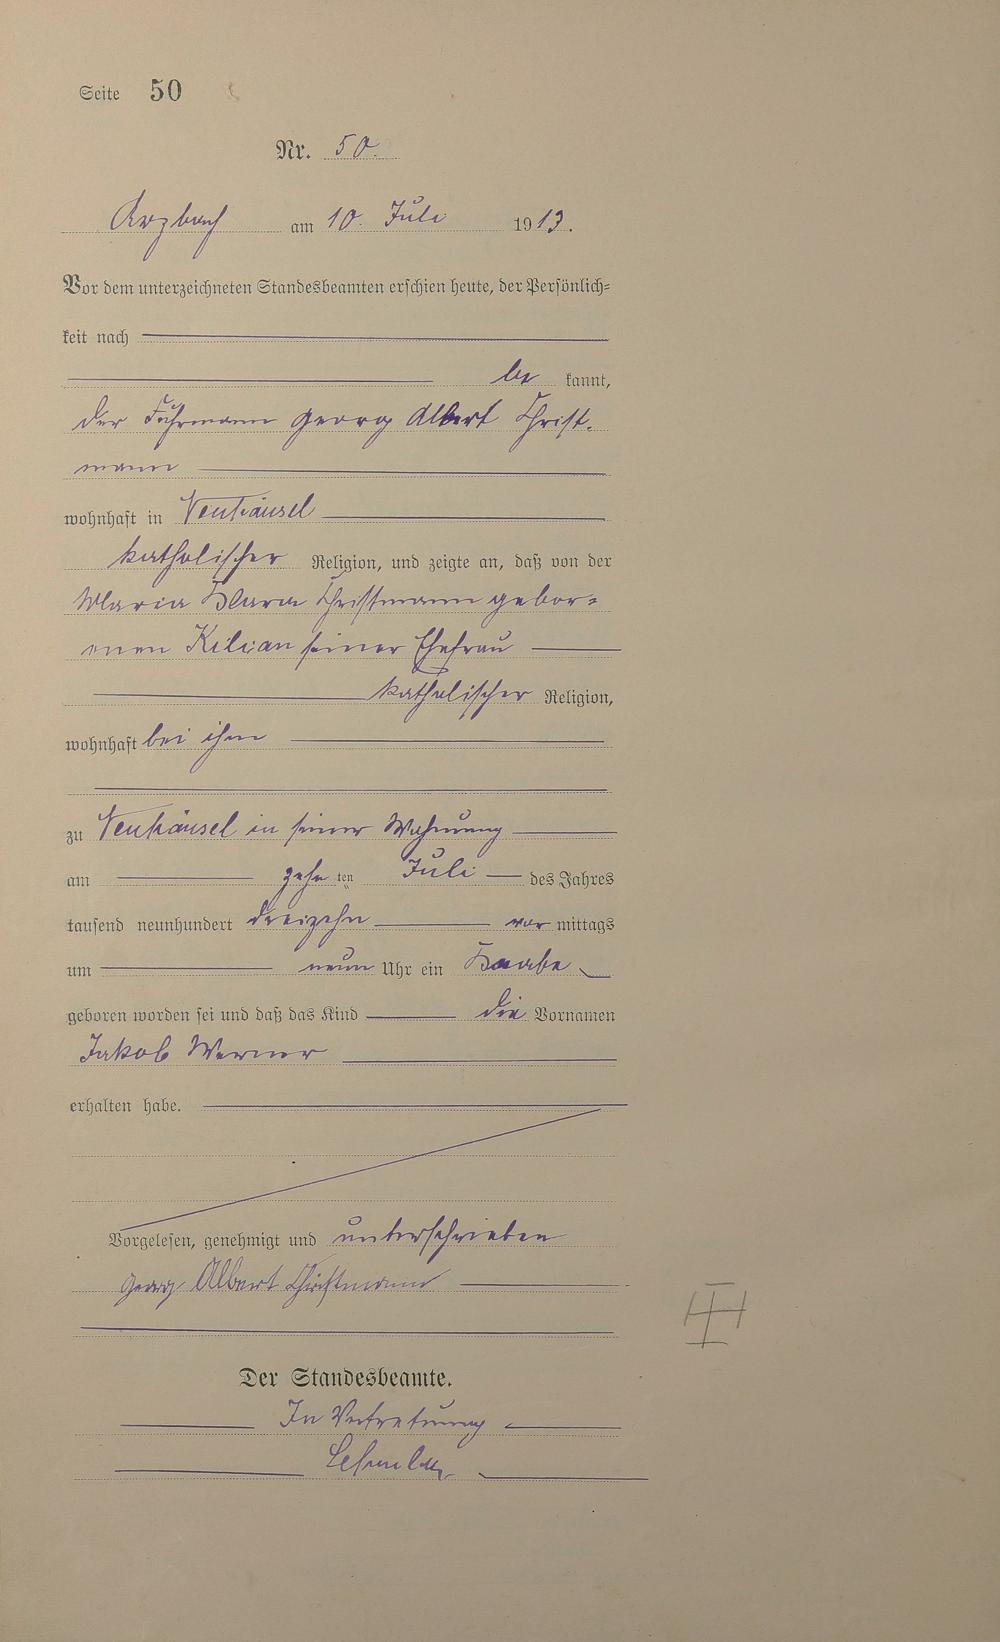 Seite 50
Nr. 50.
Arzbach am 10. Juli 1913.
Vor dem unterzeichneten Standesbeamten erschien heute, der Persönlich=
keit nach
be kannt,
der Fuhrmann Georg Albert Christ-
mann
wohnhaft in Neuhäusel
katholischer Religion, und zeigte an, daß von der
Maria Klara Christmann gebor=
enen Kilian seiner Ehefrau
katholischer Religion,
wohnhaft bei ihm
zu Neuhäusel in seiner Wohnung
am zehn ten Juli des Jahres
tausend neunhundert dreizehn vor mittags
um neun Uhr ein Knabe
geboren worden sei und daß das Kind die Vornamen
Jakob Werner
erhalten habe.
Vorgelesen, genehmigt und unterschrieben
Georg Albert Christmann
Der Standesbeamte.
In Vertretung